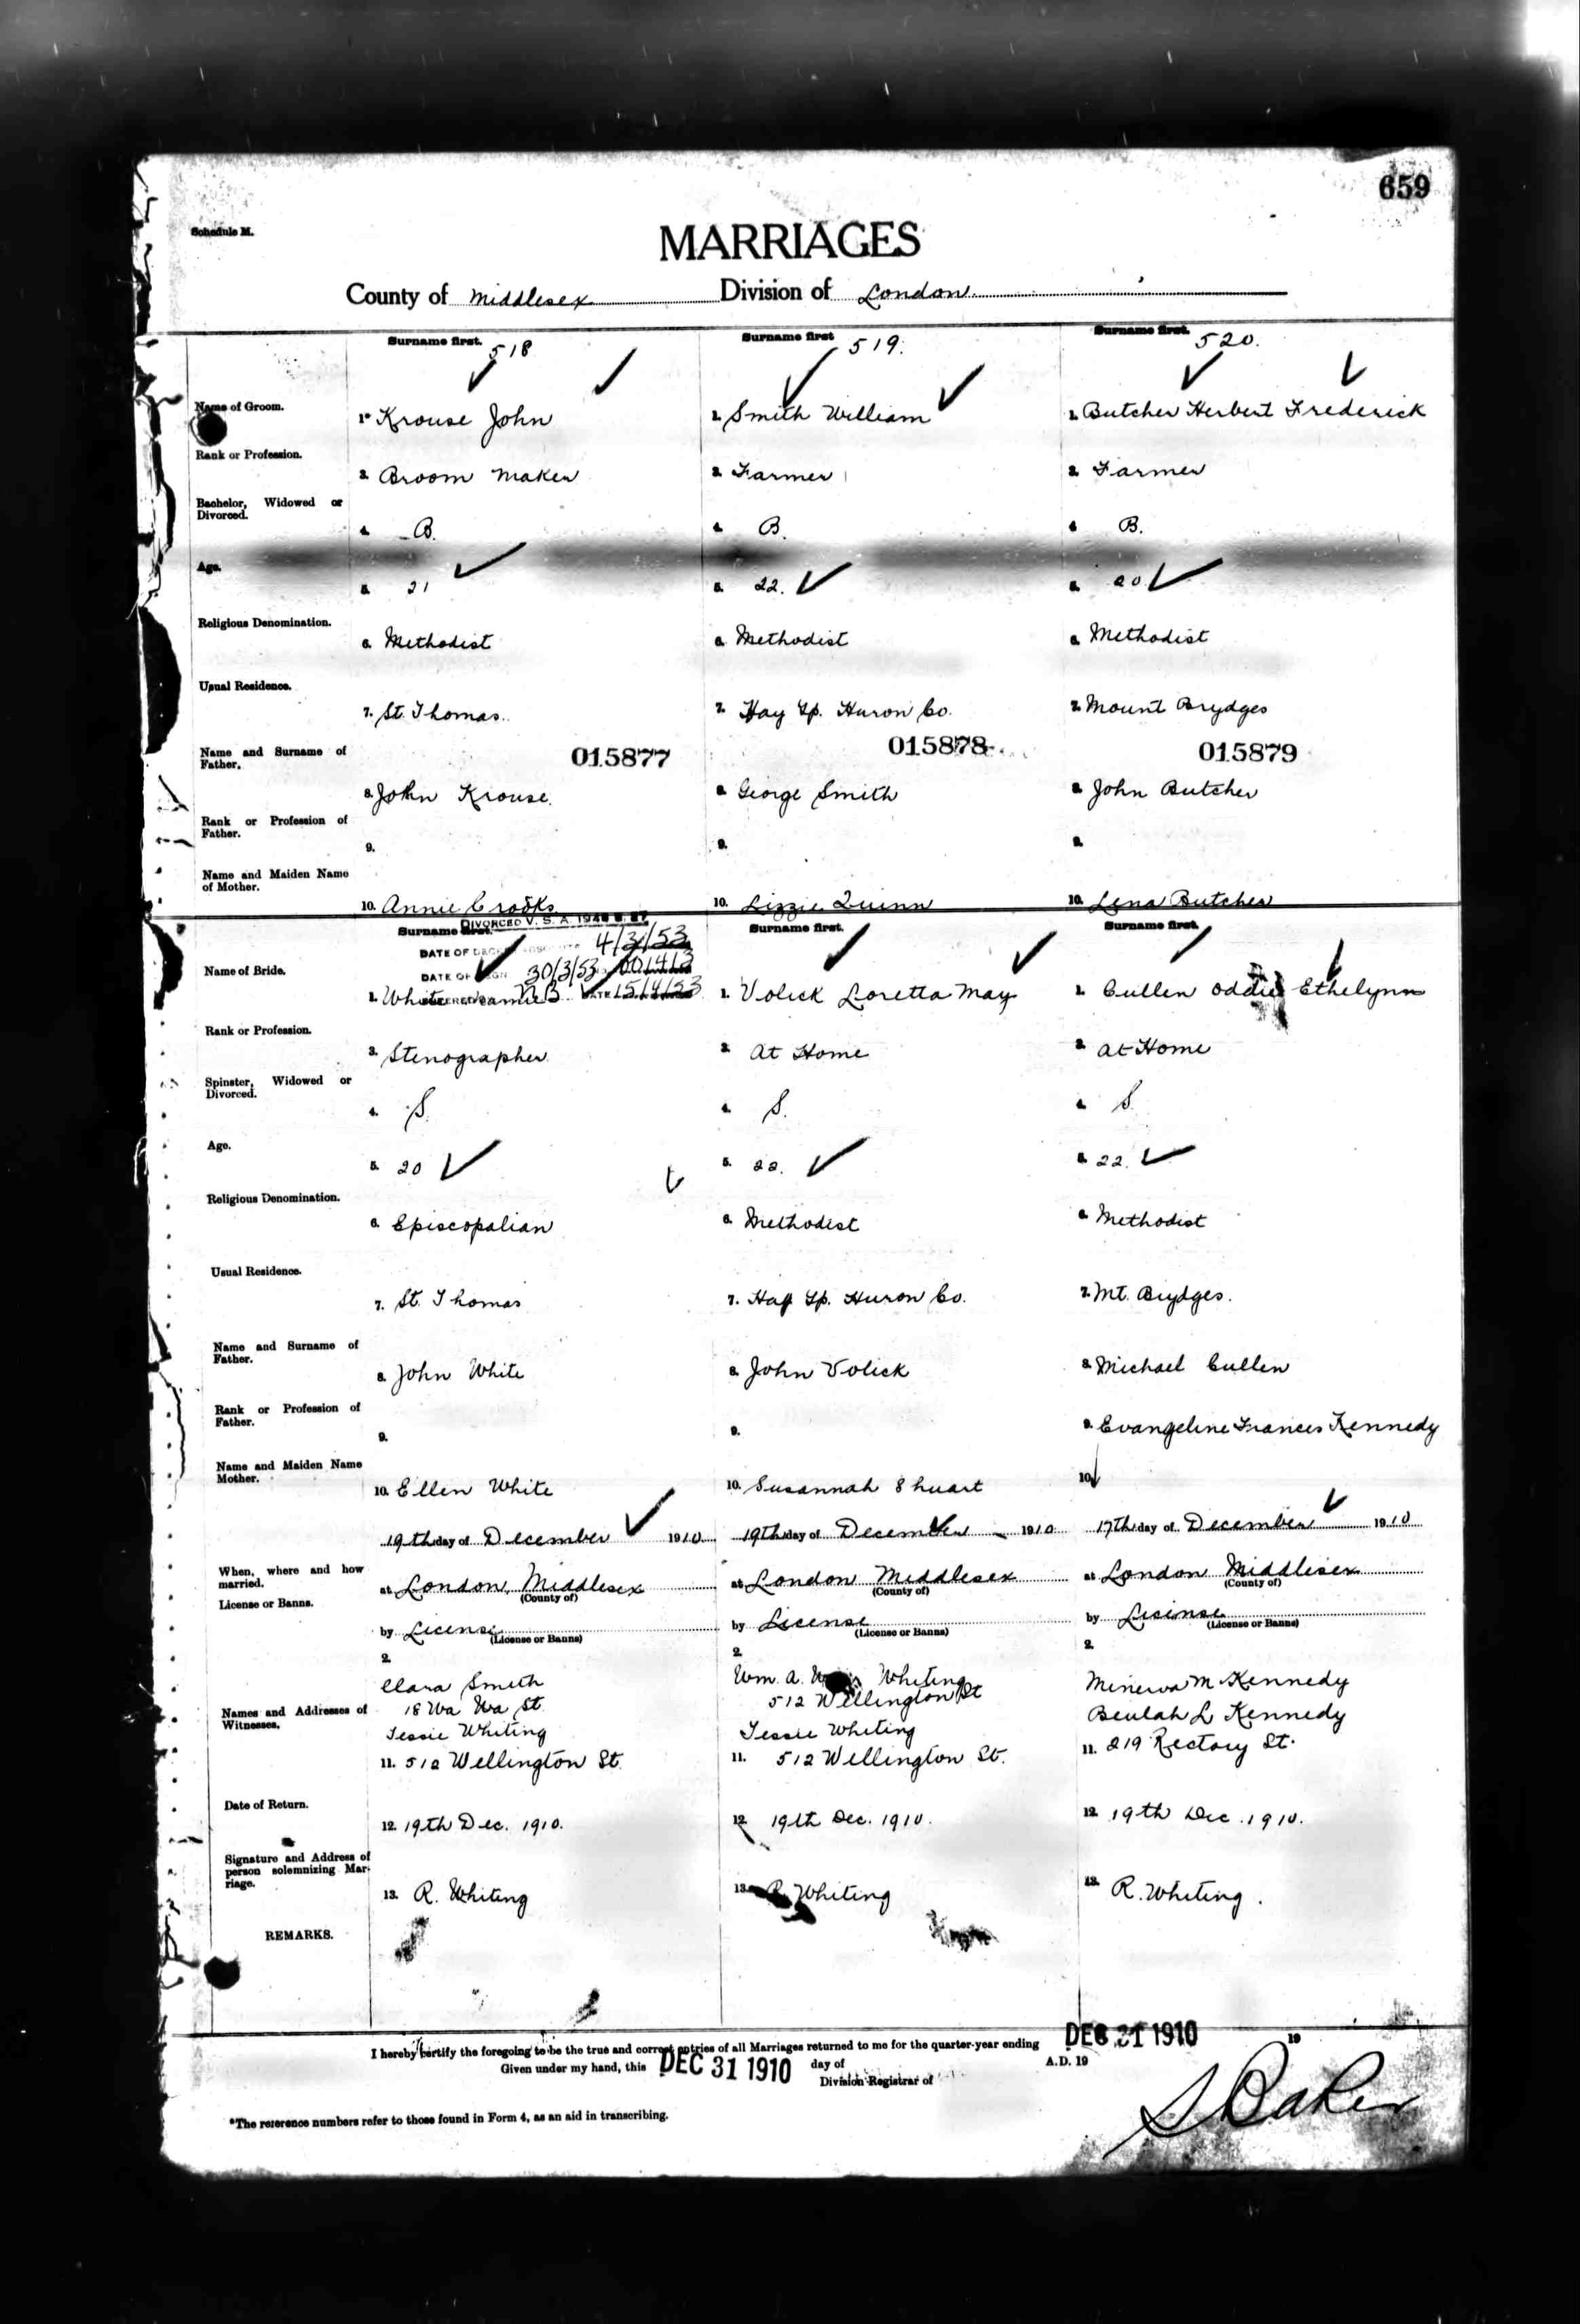 659
Schedule M.
MARRIAGES
County of Middlesex Division of London
Surname first. 518
Surname first 519.
Surname first. 520.
Name of Groom.
1. Krouse John
1. Smith William
1. Butcher Herbert Frederick
Rank or Profession.
2. Broom Maker
2. Farmer
2. Farmer
Bachelor, Widowed or
Divorced.
4. B.
4. B.
4. B.
Age.
5. 21
5. 22.
5. 20
Religious Denomination.
6. Methodist
6. Methodist
6. Methodist
Usual Residence.
7. St. Thomas.
7. Hay Tp. Huron Co.
7. Mount Brydges
Name and Surname of
Father.
015877
015878
015879
8. John Krouse.
8. George Smith
8. John Butcher
Rank or Profession of
Father.
9.
9.
9.
Name and Maiden Name
of Mother.
10. Annie Crooks
10. Lizzie Quinn
10. Lena Butcher
Surname first.
DIVORCED V. S. A. 1948 S. 27
DATE OF 4/3/53
DATE OF 30/3/53
DATE 15/4/53
Surname first.
Surname first.
Name of Bride.
1. White
1. Volick Loretta May
1. Cullen Oddie Ethelynn
Rank or Profession.
3. Stenographer
2. At Home
2. At Home
Spinster, Widowed or
Divorced.
4. S.
4. S.
4. S
Age.
5. 20
5. 22.
5. 22.
Religious Denomination.
6. Episcopalian
6. Methodist
6. Methodist
Usual Residence.
7. St. Thomas
7. Hay Tp. Huron Co.
7. Mt. Brydges.
Name and Surname of
Father.
8. John White
8. John Volick
8. Michael Cullen
Rank or Profession of
Father.
9.
9.
9. Evangeline Frances Kennedy
Name and Maiden Name
Mother.
10. Ellen White
10. Susannah Shuart
10.
19th day of December 1910
19th day of December 1910
17th day of December 1910
When, where and how
married.
License or Banns.
at London, Middlesex
(County of)
at London Middlesex
(County of)
at London Middlesex
(County of)
by License
(License or Banns)
by License
(License or Banns)
by License
(License or Banns)
2.
2.
2.
Names and Addresses of
Witnesses.
Clara Smith
18 Wa Wa St
Jessie Whiting
11. 512 Wellington St.
Wm. A. Whiting
512 Wellington St
Jessie Whiting
11. 512 Wellington St.
Minerva M. Kennedy
Beulah L Kennedy
11. 219 Rectory St.
Date of Return.
12. 19th Dec. 1910.
12. 19th Dec. 1910.
12. 19th Dec. 1910.
Signature and Address of
person solemnizing Mar-
riage.
13. R. Whiting
13. R. Whiting
13. R. Whiting.
REMARKS.
I hereby certify the foregoing to be the true and correct entries of all Marriages returned to me for the quarter-year ending DEC 31 1910 19
Given under my hand, this DEC 31 1910 day of A.D. 19
Division Registrar of
S Baker
*The reference numbers refer to those found in Form 4, as an aid in transcribing.